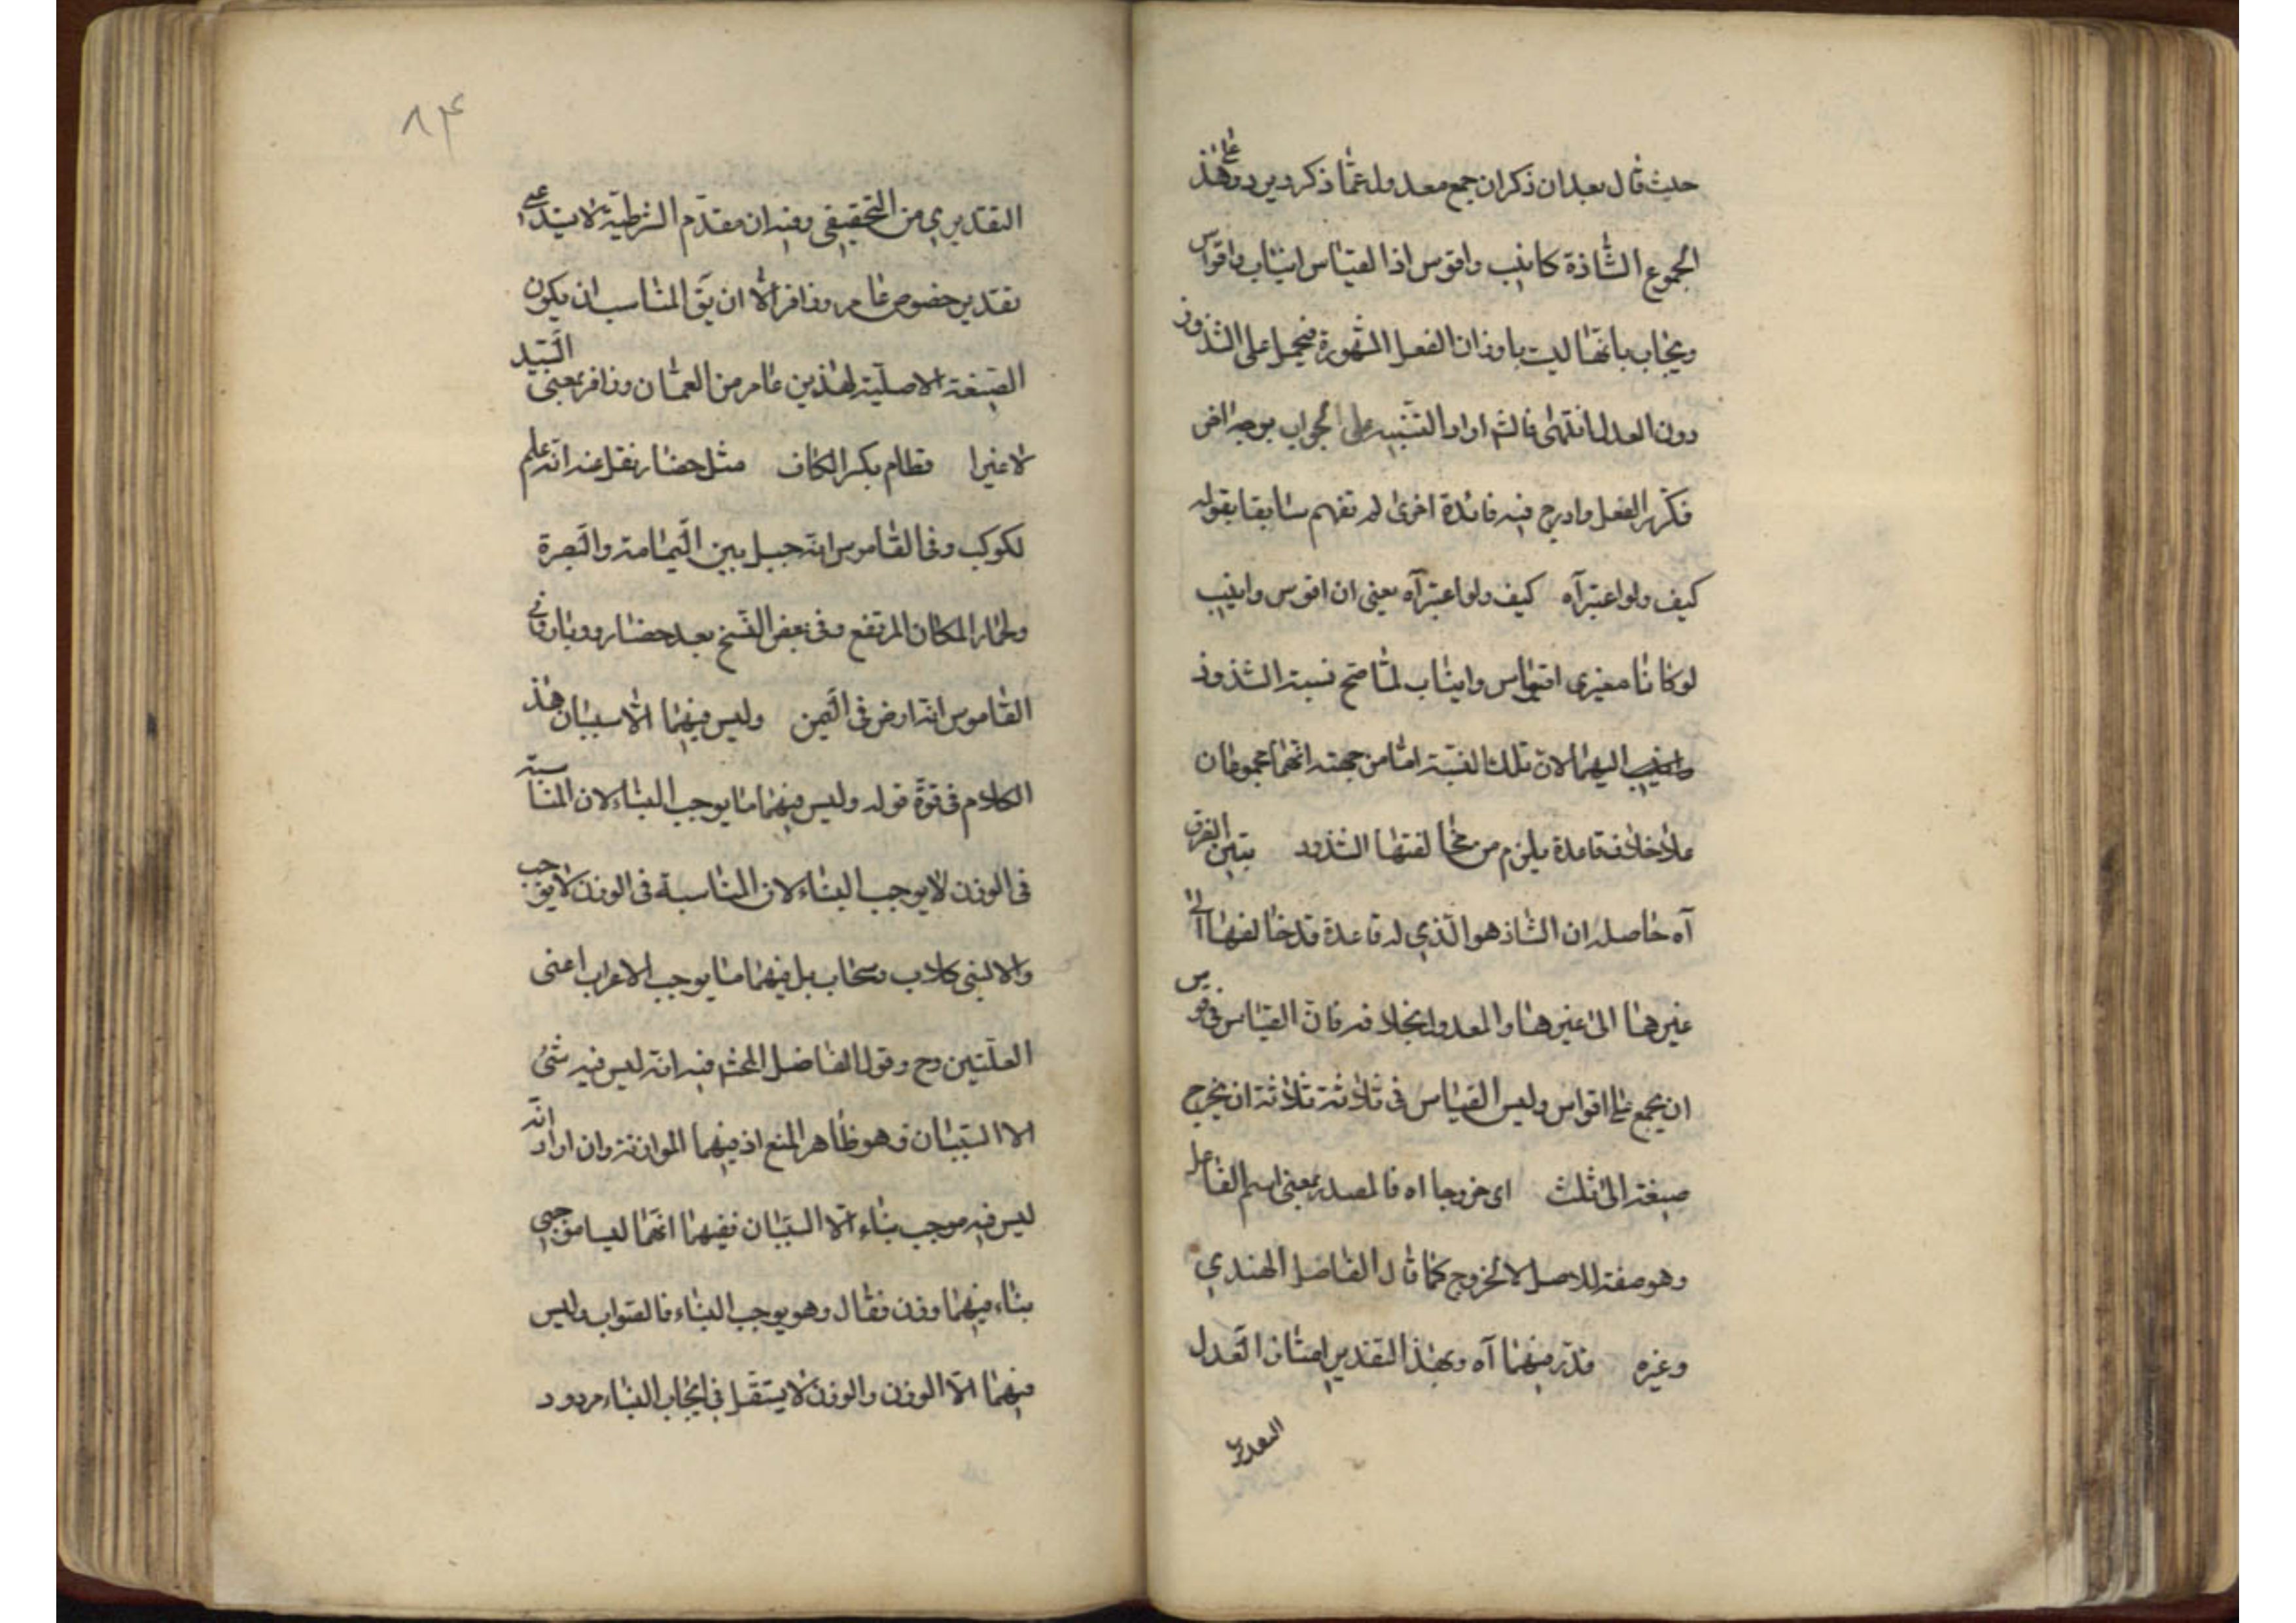 حيث قال بعد ان ذكر ان جمع معدولة عما ذكر ويرد على هذا
الجموع الشاذة كانيب واقوس اذ القياس انياب واقواس
ويجاب بانها ليت باوزان الفعل المشهورة فيحمل على الشذوذ
دون العدل انتهى فالشم اراد التنبيه على الجواب بوجه اخر
فكرر الفعل وادرج فيه فائدة اخرى لم تفهم سابقا بقوله
كيف ولو اعتبر آه كيف ولو اعتبر آه يعنى ان اقوس وانيب
لو كانا مغيرى اقواس وانياب لما صح نسبة الشذوذ
اليهما لان تلك النسبة اما من جهة انهما مجموعان
على خلاف قاعدة يلزم من مخالفتها الشذوذ يتبين الفرق
آه حاصله ان الشاذ هو الذي له قاعدة قد خالفها الى
غيرها الى غيرها والمعدول بخلافه فان القياس فى قوس
ان يجمع على اقواس وليس القياس فى ثلاثة ثلاثة ان يخرج
صيغته الى ثلث اى خروجا اه فالمصدر بمعنى اسم الفاعل
وهو صفة للاصل لا لخروج كما قال الفاضل الهندي
وغيره قدر فيهما آه وبهذا التقدير امتاز العدل
التقديري
٨۴
التقديري من التحقيقى وفيه ان مقدم الشرطية لا يتدعى
تقدير خصوص عامر وزافر الا ان يق المناسب ان يكون
الصيغة الاصلية لهذين عامر من العمان وزافر بمعنى السيد
لا غيرا وقطام بكسر الكاف مثل حضار نقل عنه انه علم
لكوكب وفى القاموس انه جبل بين اليمامة والبصرة
وطمار المكان المرتفع وفى بعض النسخ بعد حضار ووبار وفى
القاموس انه ارض فى اليمن وليس فيهما الا سببان هذا
الكلام فى قوة قوله وليس فيهما ما يوجب البناء لان المناسبة
فى الوزن لا يوجب البناء لان المناسبة فى الوزن لا يوجب
والا لبنى كلاب وسحاب بل فيهما ما يوجب الاعراب اعنى
العلتين وح وقول الفاضل المحشى فيه انه ليس فيه شئ
الا السببان فهو ظاهر المنع اذ فيهما الموازنة وان اراد انه
ليس فيه موجب بناء الا السببان ففيهما انهما ليسا موجبى
بناء فيهما وزن فقال وهو يوجب البناء فالصواب وليس
فيهما الا الوزن والوزن لا يستقل فى ايجاب البناء مردود